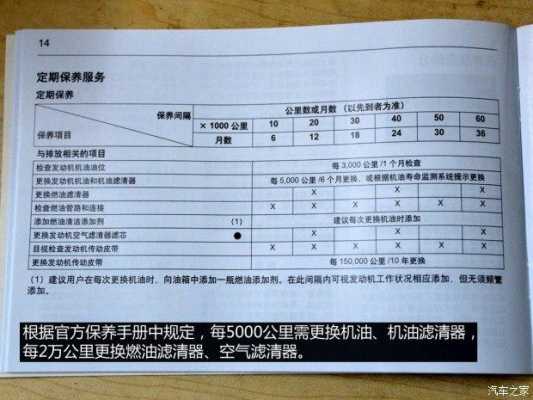 14
定期保养服务
定期保养
保养间隔 公里数或月数 (以先到者为准)
× 1000 公里 10 20 30 40 50 60
保养项目 月数 6 12 18 24 30 36
与排放相关的项目
检查发动机机油油位 每 3,000 公里 /1 个月检查
更换发动机机油和机油滤清器 每 5,000 公里 /6 个月更换、或根据机油寿命监测系统提示更换
更换燃油滤清器 X X X
检查燃油管路和连接 X X X X X X
添加燃油清洁添加剂 (1) 建议每次更换机油时添加
更换发动机空气滤清器滤芯 ● X X X
目视检查发动机传动皮带 X X X X X X
更换发动机传动皮带 每 150,000 公里 /10 年更换
(1) 建议用户在每次更换机油时、向油箱中添加一瓶燃油添加剂。在此间隔内可视发动机工作状况相应添加、但无须频繁
添加。
根据官方保养手册中规定，每5000公里需更换机油、机油滤清器，
每2万公里更换燃油滤清器、空气滤清器。
汽车之家